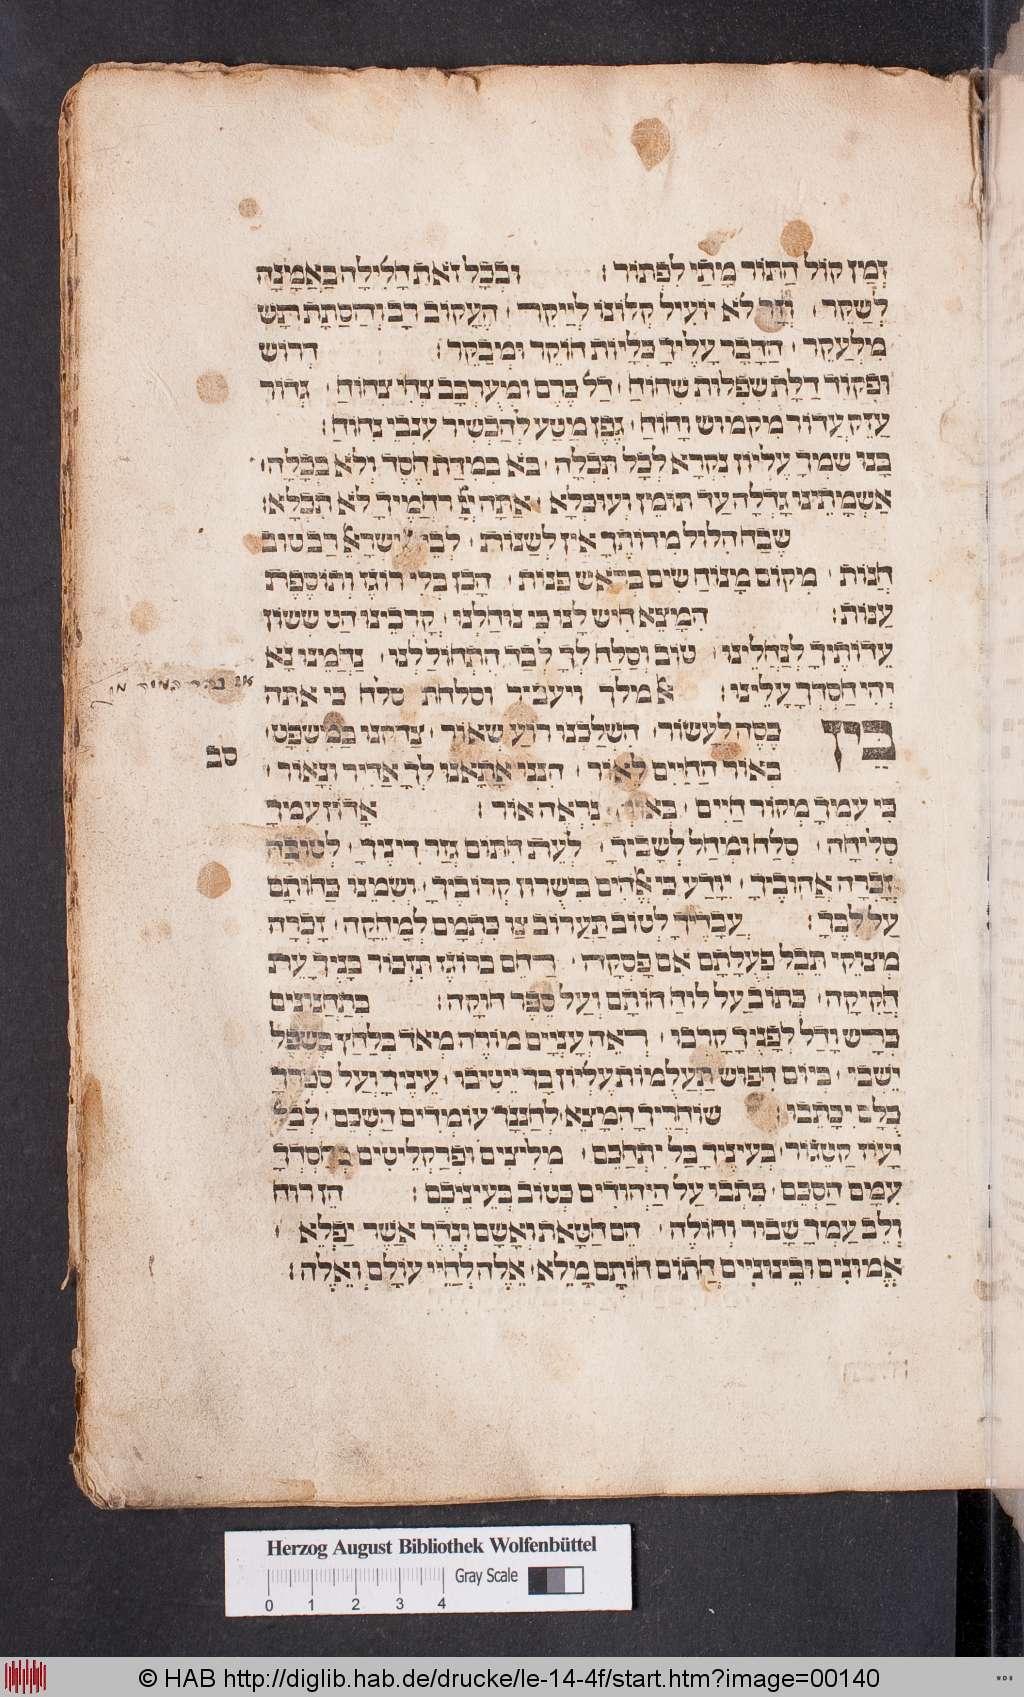 זְמַן קוֹל הַתּוֹר מָתַי לִפְתּוֹר : וּבְכָל זֹאת דָּלִילָה בַּאֲמָנָה
לְשַׁקֵּר : לֹא יוֹעִיל קְלוֹנוֹ לְיַיקֵר · הֶעָקוֹב רַב וְהַסָּתַת תָּשׁ
מִלְעַקֵּר · הַדָּבָר עָלֶיךָ כְּלָיוֹת חוֹקֵר וּמְבַקֵּר : דְּרוֹשׁ
וּפְקוֹד דַּלַּת שִׁפְלוּת שָׁחוֹחַ · דַּל כֶּרֶם וּמְעֻרְבָּב צִחֲי צָחוֹחַ · גְּדוֹר
עָזֵק עֲדוֹר מִקִּמּוֹשׁ וָחוֹחַ · גֶּפֶן מַטָּע לְהַכְשִׁיר עִנְּבֵי נִחוֹחַ :
בָּנוּ שִׁמְךָ עֶלְיוֹן נִקְרָא לְכָל תִּכְלָה · בֹּא בְמִדַּת חֶסֶד וְלֹא בְּכָלָה :
אַשְׁמָתֵינוּ גָדְלָה עַד תּוּמַן וְעוּכְּלָא · אַתָּה יְיָ רַחֲמֶיךָ לֹא תִכְלָא :
שֶׁבַח הִלּוּל מִדּוֹתֶיךָ אֵין לְשַׁנּוֹת · לְבֵית יִשְׂרָאֵל רַב טוּב
חֲנוֹת · מְקוֹם מָנוֹחַ שִׂים בְּרֹאשׁ פִּנּוֹת · הָכֵן בְּלִי רוֹגֶז וְתוֹסֶפֶת
עַנּוֹת : הִמָּצֵא חִישׁ לָנוּ כִּי נוֹחַלְנוּ · קָרְבֵינוּ הַט שִׂשּׂוֹן
עֵדוֹתֶיךָ לְנַחֲלֵינוּ · טוֹב וְסַלָּח לְךָ לְבַד הִתְחוֹלַלְנוּ · נַחֲמֵינוּ נָא
וִיהִי חַסְדְּךָ עָלֵינוּ : אל מלך ויעביר וסלחת סלח כי אתה
בֵּין כֶּסֶה לֶעָשׂוֹר · הִשְׁלַכְנוּ רוֹעַ שְׂאוֹר · צַדְּקֵנוּ בַּמִּשְׁפָּט ·
סב
בְּאוֹר הַחַיִּים לֵאוֹר · הִנְנוּ אָתָאנוּ לְךָ אַדִּיר וְנָאוֹר ·
כִּי עִמְּךָ מְקוֹר חַיִּים · בְּאוֹרְךָ נִרְאֶה אוֹר : אָדוֹן עִמְּךָ
סְלִיחָה · סְלַח וּמְחַל לְשָׁבֶיךָ · לְעֵת חִתּוּם גְּזַר דִּינֶיךָ · לְטוֹבָה
זָכְרָה אֲהוּבֶיךָ · יִוָּדַע כִּי אֱלֹהִים בִּישֻׁרוּן קְרוֹבֶיךָ · וְשִׂמֵנוּ כַחוֹתָם
עַל לִבֶּךָ : עֲבָדֶיךָ לְטוֹב תַּעֲרוֹב צַו כְּתָמָם לִמְחָקָה · זָכְרָה
מְצוּקֵי תֵבֵל פְּעֻלָּתָם אִם פָּסְקָה · רַחֵם בְּרוֹגֶז תִּזְכּוֹר בָּנֶיךָ עֵת
חֲקִיקָה · כְּתוֹב עַל לוּחַ חוֹתָם וְעַל סֵפֶר חוּקָּה : בְּתַחֲנוּנִים
כְּרָשׁ וָדַל לְפָנֶיךָ קָרְבוּ · רְאֵה עֲנִיִּים מוֹרֶה מְאֹד בְּלַחַץ בַּשֵּׁפֶל
יָשְׁבוּ · בְּיוֹם חִפּוּשׂ תַּעֲלֻמוֹת עֶלְיוֹן בְּךָ יֵיטִיבוּ · עֵינֶיךָ וְעַל סִפְרְךָ
כֻּלָּם יִכָּתֵבוּ : שׁוֹחֲרֶיךָ הִמָּצֵא לְהַנְּךָ עוֹמְדִים הַשְׁכֵּם · לְבַל
יָעוֹז קַטֵּגוֹר · בְּעֵינֶיךָ כַּל יִתְחַכָּם · מְלִיצִים וּפְרַקְלִיטִים בְּחַסְדְּךָ
עִמָּם הַסְכֵּם · כִּתְבוּ עַל הַיְּהוּדִים כַּטּוֹב בְּעֵינֵיכֶם : הֵן רוּחַ
וְלֵב עַמְּךָ שָׁבוּר וְחוֹלֶה · הֵם חַטָּאת וְאָשָׁם וְנֶדֶר אֲשֶׁר יַפְלֵא ·
אֱמוּנִים וּבֵינוֹנִיִּים חֲתוֹם חוֹתָם מָלֵא · אֵלֶּה לְחַיֵּי עוֹלָם וְאֵלֶּה :
Herzog August Bibliothek Wolfenbüttel
Gray Scale
0 1 2 3 4
© HAB http://diglib.hab.de/drucke/le-14-4f/start.htm?image=00140